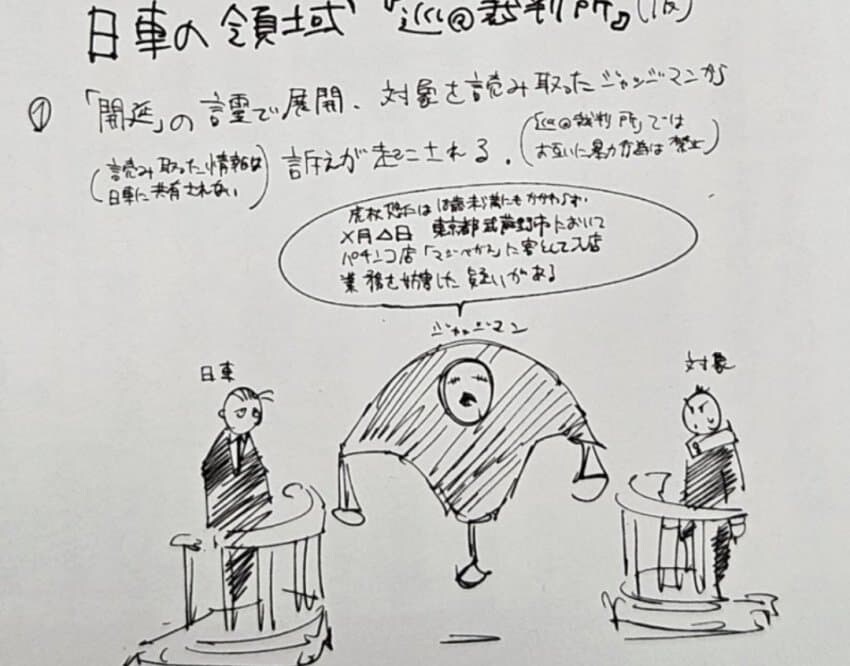 日車の領域『巡@裁判所』(仮)
①「開廷」の言霊で展開、対象を読み取ったジャッジマンから
(読み取った情報は
日車に共有されない)
訴えが起こされる。
(『巡@裁判所』では
お互いに暴力行為は禁止)
虎杖悠仁は18歳未満にもかかわらず
×月△日 東京都武蔵野市において
パチンコ店「マジベガス」に客として入店
業務を妨害した疑いがある
ジャッジマン
日車
対象